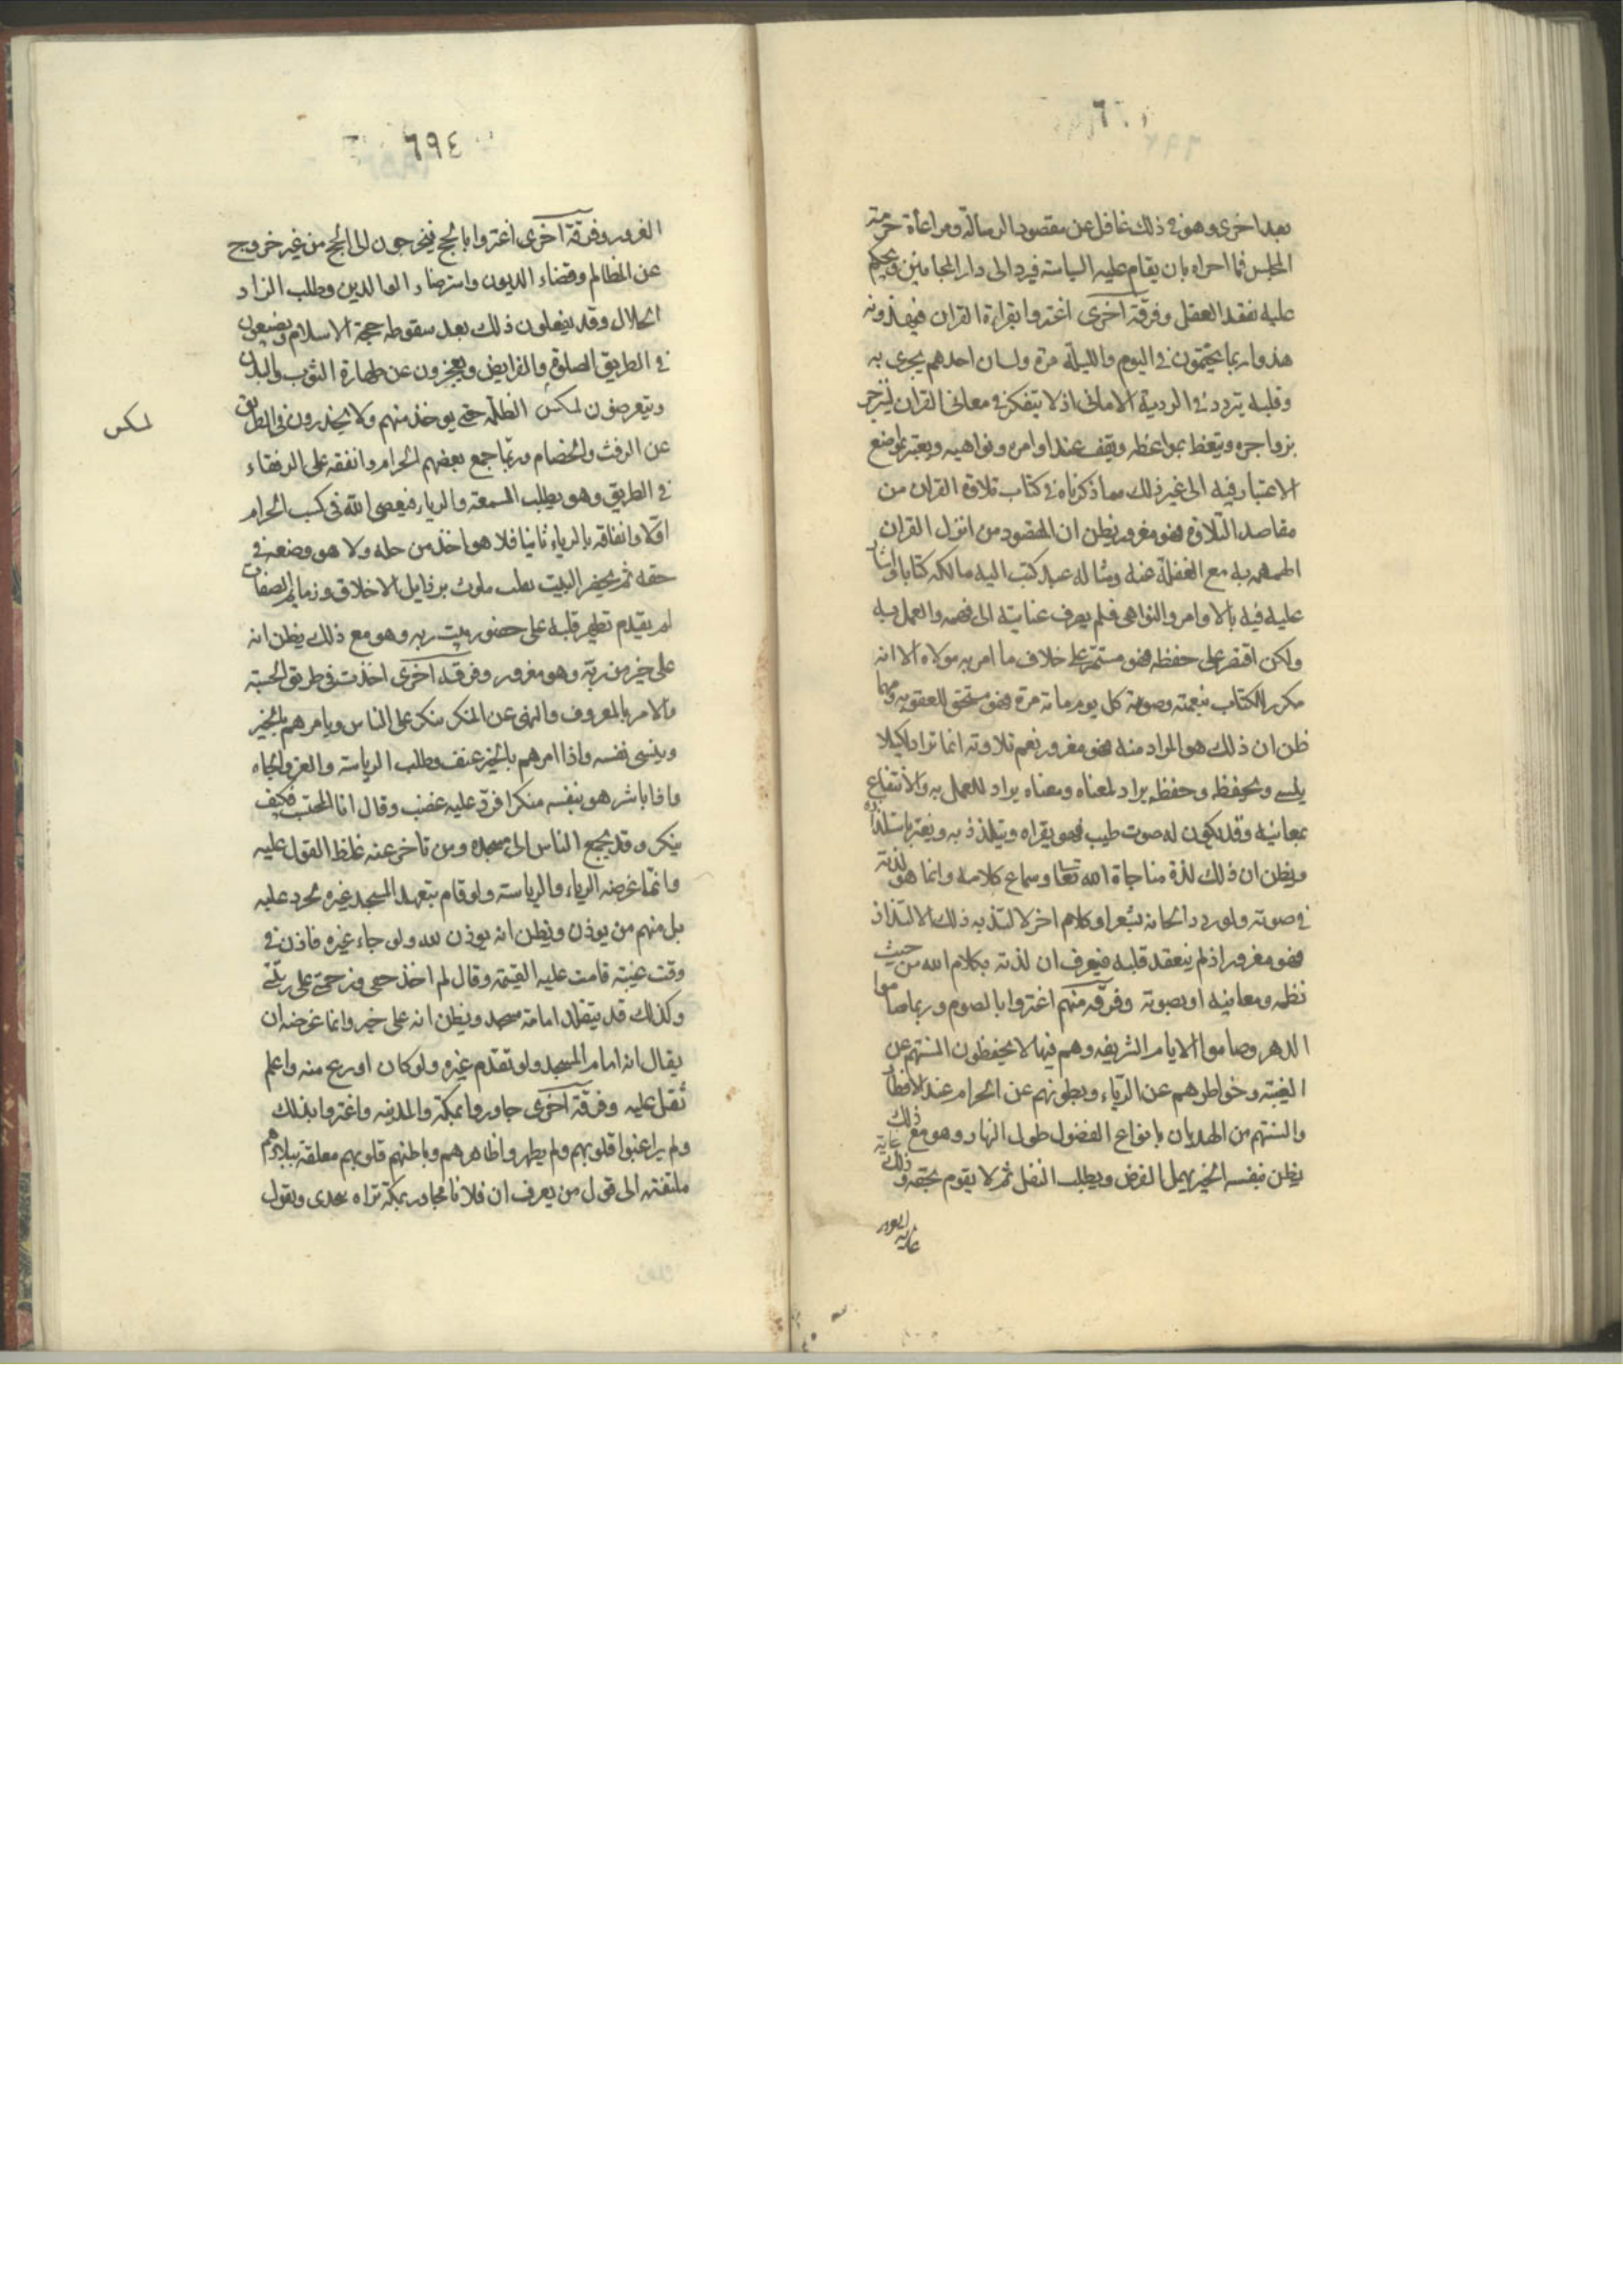 بعد اخرى وهو في ذلك غافل عن مقصود الرسالة ومراعاة حرمة
المجلس فما احراه بان يقام عليه السياسة فيرد الى دار المجانين ويحكم
عليه بفقد العقل وفرقة اخرى اغتروا بقراءة القران فيهذونه
هذوا ربما يختمون في اليوم والليلة مرة ولسان احدهم يجرى به
وقلبه يتردد في اودية الاماني اذ لا يتفكر في معاني القران لينزجر
بزواجره ويتعظ بمواعظه ويقف عند اوامره ونواهيه ويعتبر بمواضع
الاعتبار فيه الى غير ذلك مما ذكرناه في كتاب تلاوة القران من
مقاصد التلاوة فهو مغرور يظن ان المقصود من انزل القران
الهمهمة به مع الغفلة عنه ومثاله عبد كتب اليه مالكه كتابا واشار
عليه فيه بالاوامر والنواهى فلم يصرف عنايته الى فهمه والعمل به
ولكن اقتصر على حفظه فهو مستمر على خلاف ما امر به مولاه الا انه
مكرر للكتاب بنغمته وصوته كل يوم مائة مرة فهو مستحق للعقوبه ومهما
ظن ان ذلك هو المراد منه فهو مغرور نعم تلاوته انما تراد لكيلا
ينسى وتحفظ وحفظه يراد لمعناه ومعناه يراد للعمل به والانتفاع
بمعانيه وقد يكون له صوت طيب فهو يقراه ويتلذذ به ويغتر باستلذاذه
ويظن ان ذلك لذة مناجاة الله تعا وسماع كلامه وانما هو لذته
في صوته ولو ردد الحانه بشعر او كلام اخر لالتذ به ذلك الالتذاذ
فهو مغرور اذ لم يتفقد قلبه فيعرف ان لذته بكلام الله من حيث
نظمه ومعانيه او بصوته وفرقة منهم اغتروا بالصوم وربما صاموا
الدهر وصاموا الايام الشريفه وهم فيها لا يحفظون السنتهم عن
الغيبة وخواطرهم عن الرياء وبطونهم عن الحرام عند الافطار
والسنتهم من الهديان بانواع الفضول طول النهار وهو مع ذلك
يظن بنفسه الخير يهمل الفرض ويطلب النفل ثم لا يقوم بحقه وذلك غاية
غاية الغرور
٦٩٤
الغرور وفرقة اخرى اغتروا بالحج فيخرجون الى الحج من غير خروج
عن المظالم وقضاء الديون واسترضاء الوالدين وطلب الزاد
الحلال وقد يفعلون ذلك بعد سقوط حجة الاسلام ويضيعون
في الطريق الصلوة والفرايض ويعجزون عن طهارة الثوب والبدن
ويتعرضون لمكس الظلمة حتى يوخذ منهم ولا يحذرون في الطريق
لمكس
عن الرفث والخصام وربما جمع بعضهم الحرام وانفقه على الرفقاء
في الطريق وهو يطلب السمعة والرياء فيعصى الله في كسب الحرام
اولا وانفاقه بالرياء ثانيا فلا هو اخذ من حله ولا هو وضعه في
حقه ثم يحضر البيت بقلب ملوث برذايل الاخلاق وذمايم الصفات
لم يقدم تطهير قلبه على حضور بيت ربه وهو مع ذلك يظن انه
على خير من ربه وهو مغرور وفرقة اخرى اخذت في طريق الحسبة
والامر بالمعروف والنهى عن المنكر ينكر على الناس ويامرهم بالخير
وينسى نفسه واذا امرهم بالخير عنف وطلب الرياسة والعز والجاه
واذا باشر هو بنفسه منكرا فرد عليه غضب وقال انا المحتسب فكيف
ينكر وقد يجمع الناس الى مسجده ومن تاخر عنه غلظ القول عليه
وانما غرضه الرياء والرياسة ولو قام بتعهد المسجد غيره لحرد عليه
بل منهم من يوذن ويظن انه يوذن لله ولو جاء غيره فاذن في
وقت غيبته قامت عليه القيمة وقال لم اخذ حقي وزحمتي على رتبتي
وكذلك قد يتقلد امامة مسجد ويظن انه على خير وانما غرضه ان
يقال انه امام المسجد ولو تقدم غيره ولو كان اورع منه واعلم
ثقل عليه وفرقة اخرى جاوروا بمكة والمدينه واغتروا بذلك
ولم يراغبوا قلوبهم ولم يطهروا ظاهرهم وباطنهم قلوبهم معلقة ببلادهم
ملتفتة الى قول من يعرف ان فلانا مجاور بمكة تراه يتحدى ويقول